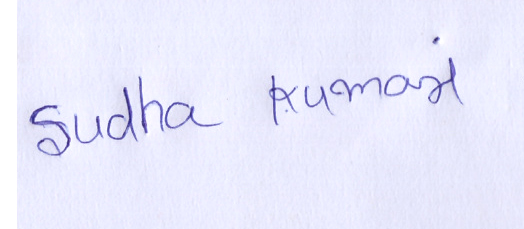 Sudha Kumari